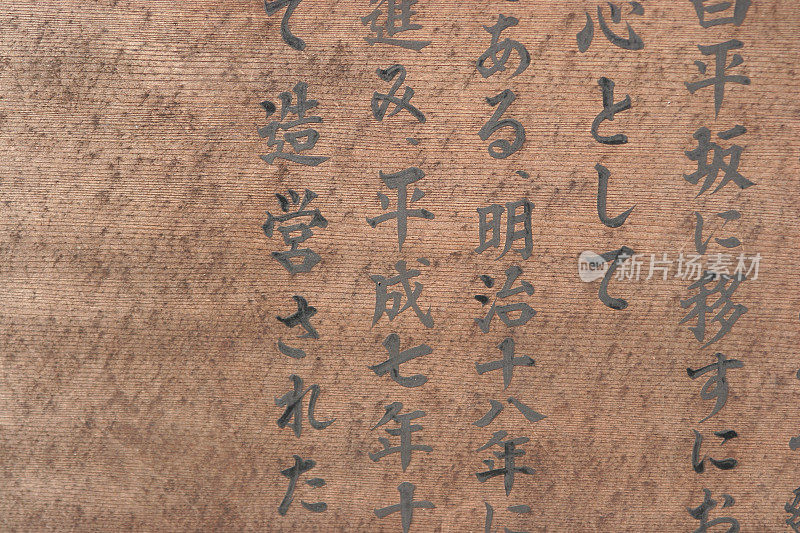 昌平坂に移すにお
心として
ある、明治十八年に
進み、平成七年十
て造営された
new
新片场图库